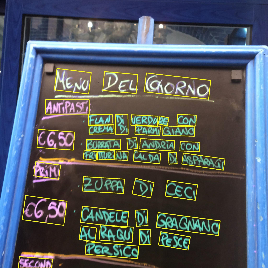 MENÙ DEL GIORNO
ANTIPASTI
FLAN DI VERDURE CON
CREMA DI PARMIGIANO
€6,50
BURRATA DI ANDRIA CON
FRITTURINA CALDA DI ASPARAGI
PRIMI
ZUPPA DI CECI
€6,50
CANDELE DI GRAGNANO
AL RAGÙ DI PESCE
PERSICO
SECONDI